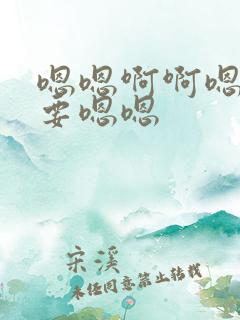 嗯嗯啊啊嗯
要嗯嗯
宋溪
未经同意禁止转载